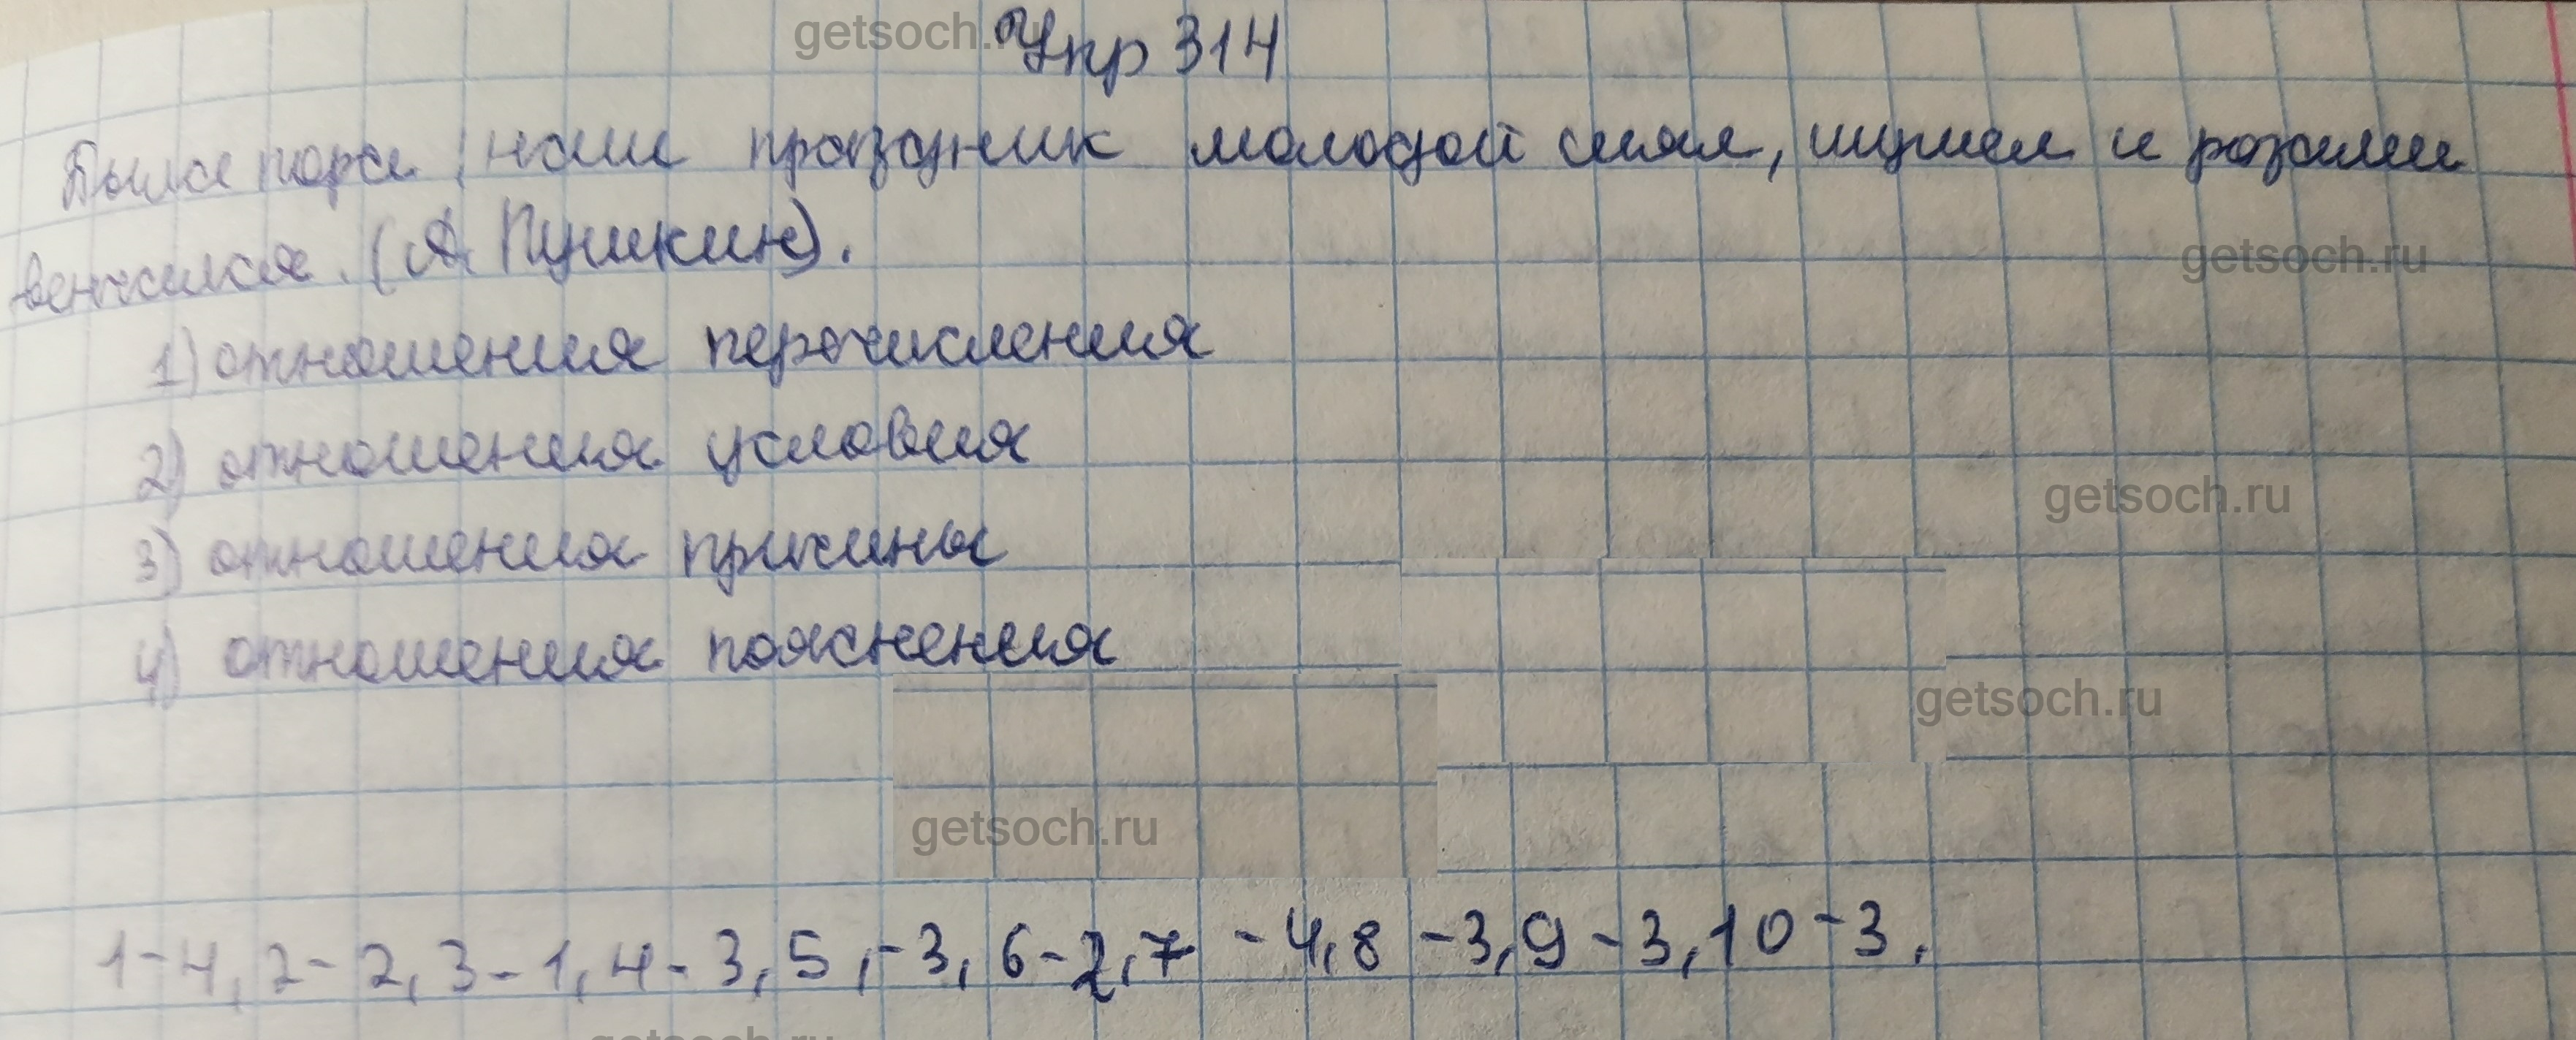 Упр 314
Была пора: наш праздник молодой сиял, шумел и розами
венчался. (А. Пушкин).
1) отношения перечисления
2) отношения условия
3) отношения причины
4) отношения пояснения
1-4, 2-2, 3-1, 4-3, 5,-3, 6-2, 7-4, 8-3, 9-3, 10-3.
getsoch.ru
getsoch.ru
getsoch.ru
getsoch.ru
getsoch.ru
getsoch.ru